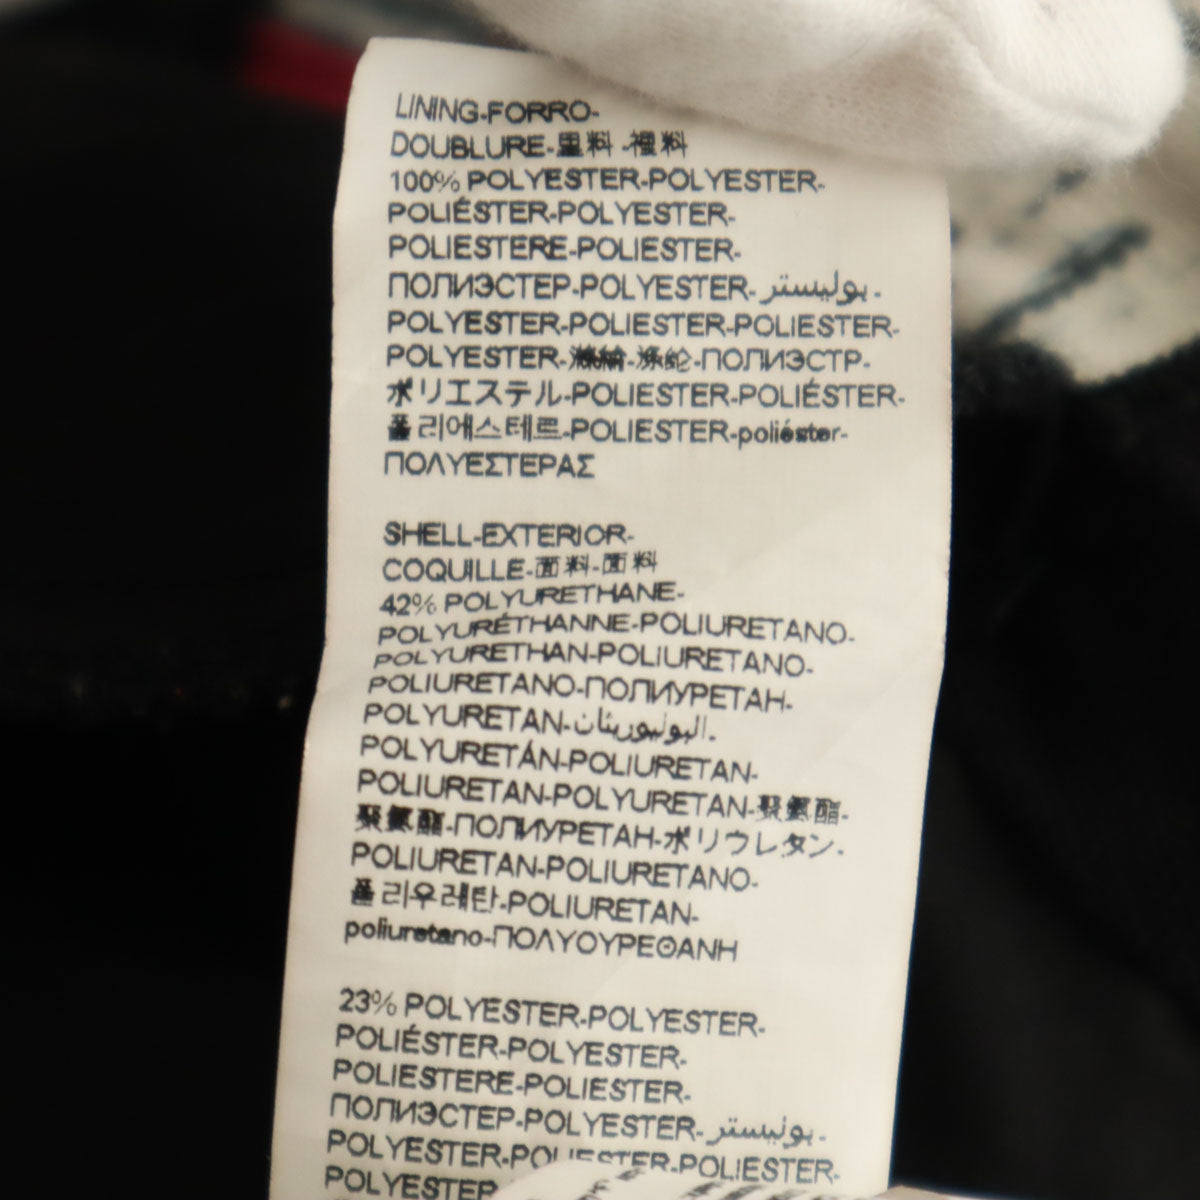 LINING-FORRO-
DOUBLURE-里料-裡料
100% POLYESTER-POLYESTER-
POLIÉSTER-POLYESTER-
POLIESTERE-POLIESTER-
ПОЛИЭСТЕР-POLYESTER-بوليستر-
POLYESTER-POLIESTER-POLIESTER-
POLYESTER-滌綸-涤纶-ПОЛИЭСТР-
ポリエステル-POLIESTER-POLIÉSTER-
폴리에스테르-POLIESTER-poliéster-
ΠΟΛΥΕΣΤΕΡΑΣ
SHELL-EXTERIOR-
COQUILLE-面料-面料
42% POLYURETHANE-
POLYURÉTHANNE-POLIURETANO-
POLYURETHAN-POLIURETANO-
POLIURETANO-ПОЛИУРЕТАН-
POLYURETAN-البوليوريثان-
POLYURETÁN-POLIURETAN-
POLIURETAN-POLYURETAN-聚氨酯-
聚氨酯-ПОЛИУРЕТАН-ポリウレタン-
POLIURETAN-POLIURETANO-
폴리우레탄-POLIURETAN-
poliuretano-ΠΟΛΥΟΥΡΕΘΑΝΗ
23% POLYESTER-POLYESTER-
POLIÉSTER-POLYESTER-
POLIESTERE-POLIESTER-
ПОЛИЭСТЕР-POLYESTER-بوليستر-
POLYESTER-POLIESTER-POLIESTER-
POLYESTER